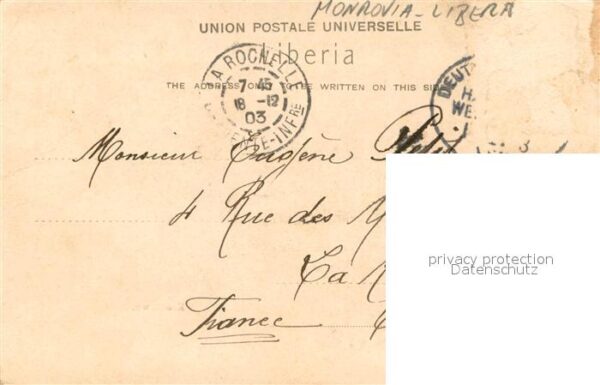 MONROVIA - LIBERA
UNION POSTALE UNIVERSELLE
Liberia
THE ADDRESS ONLY TO BE WRITTEN ON THIS SIDE
LA ROCHELLE
7-45
18-12
03
TE-INFRE
DEUT
H
WE
3
Monsieur Eugène
4 Rue des M
La R
France
privacy protection
Datenschutz